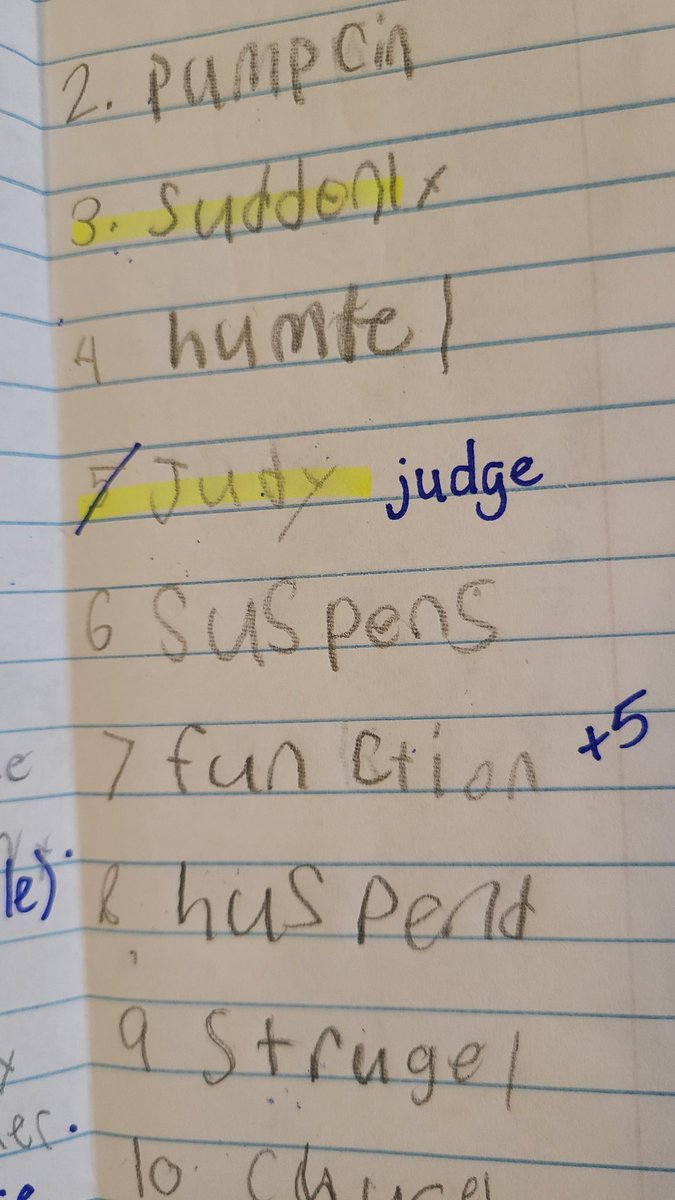 2. pumpcin
3. Suddenly
4 humtel
5 Judy judge
6 Suspens
7 function +5
e
le)
8 huspend
9 Strugel
er.
10.